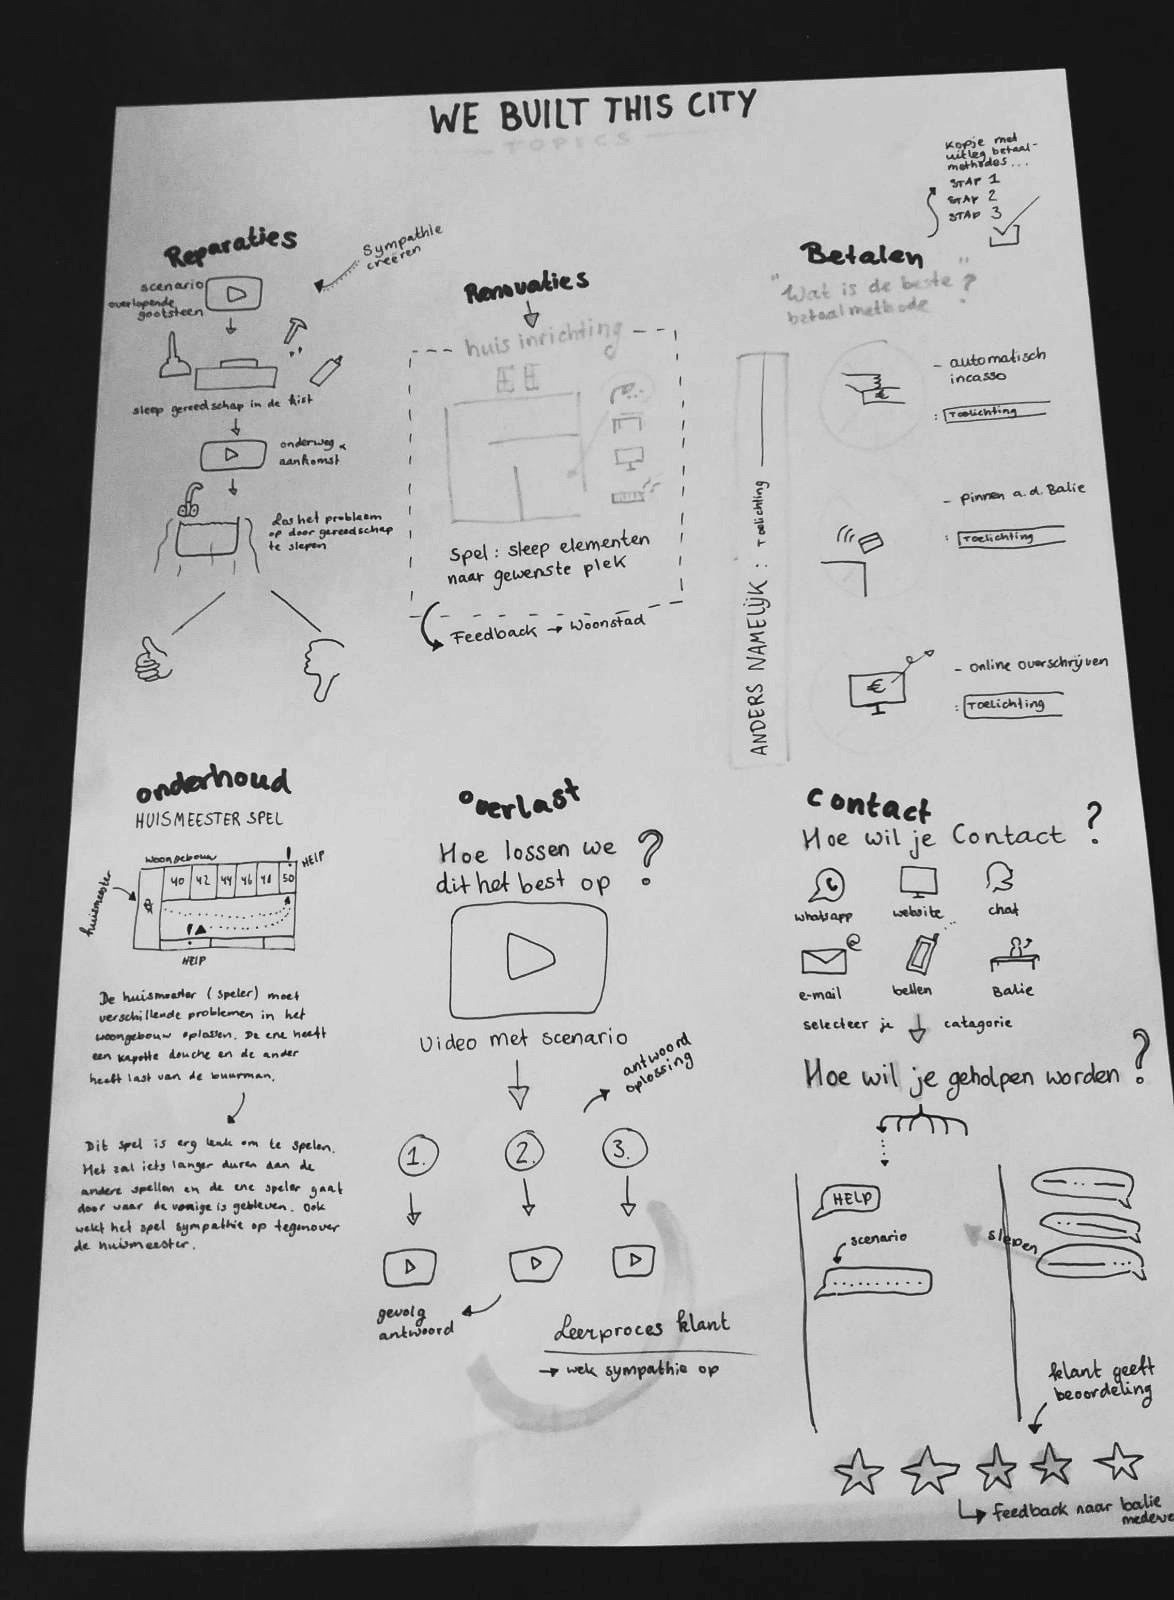 WE BUILT THIS CITY
TOPICS
Reparaties
Sympathie
creëren
scenario
overlopende
gootsteen
sleep gereedschap in de kist
onderweg
aankomst
Los het probleem
op door gereedschap
te slepen
Renovaties
huis inrichting
Spel: sleep elementen
naar gewenste plek
Feedback → Woonstad
Kopje met
uitleg betaal-
methodes...
STAP 1
STAP 2
STAP 3
Betalen
"Wat is de beste"
betaalmethode ?
ANDERS NAMELIJK : Toelichting
- automatisch
incasso
€
: Toelichting
- pinnen a.d. Balie
: Toelichting
- online overschrijven
€
: Toelichting
onderhoud
HUISMEESTER SPEL
woongebouw
! HELP
huismeester
40 42 44 46 48 50
!
HELP
De huismeester (speler) moet
verschillende problemen in het
woongebouw oplossen. De ene heeft
een kapotte douche en de ander
heeft last van de buurman.
Dit spel is erg leuk om te spelen.
Het zal iets langer duren dan de
andere spellen en de ene speler gaat
door waar de vorige is gebleven. Ook
wekt het spel sympathie op tegenover
de huismeester.
overlast
Hoe lossen we
dit het best op ?
Video met scenario
antwoord
oplossing
1. 2. 3.
gevolg
antwoord
Leerproces klant
→ wek sympathie op
Contact
Hoe wil je Contact ?
whatsapp website chat
@
e-mail bellen Balie
selecteer je catagorie
Hoe wil je geholpen worden ?
HELP
scenario
slepen
klant geeft
beoordeling
Feedback naar balie
medewe